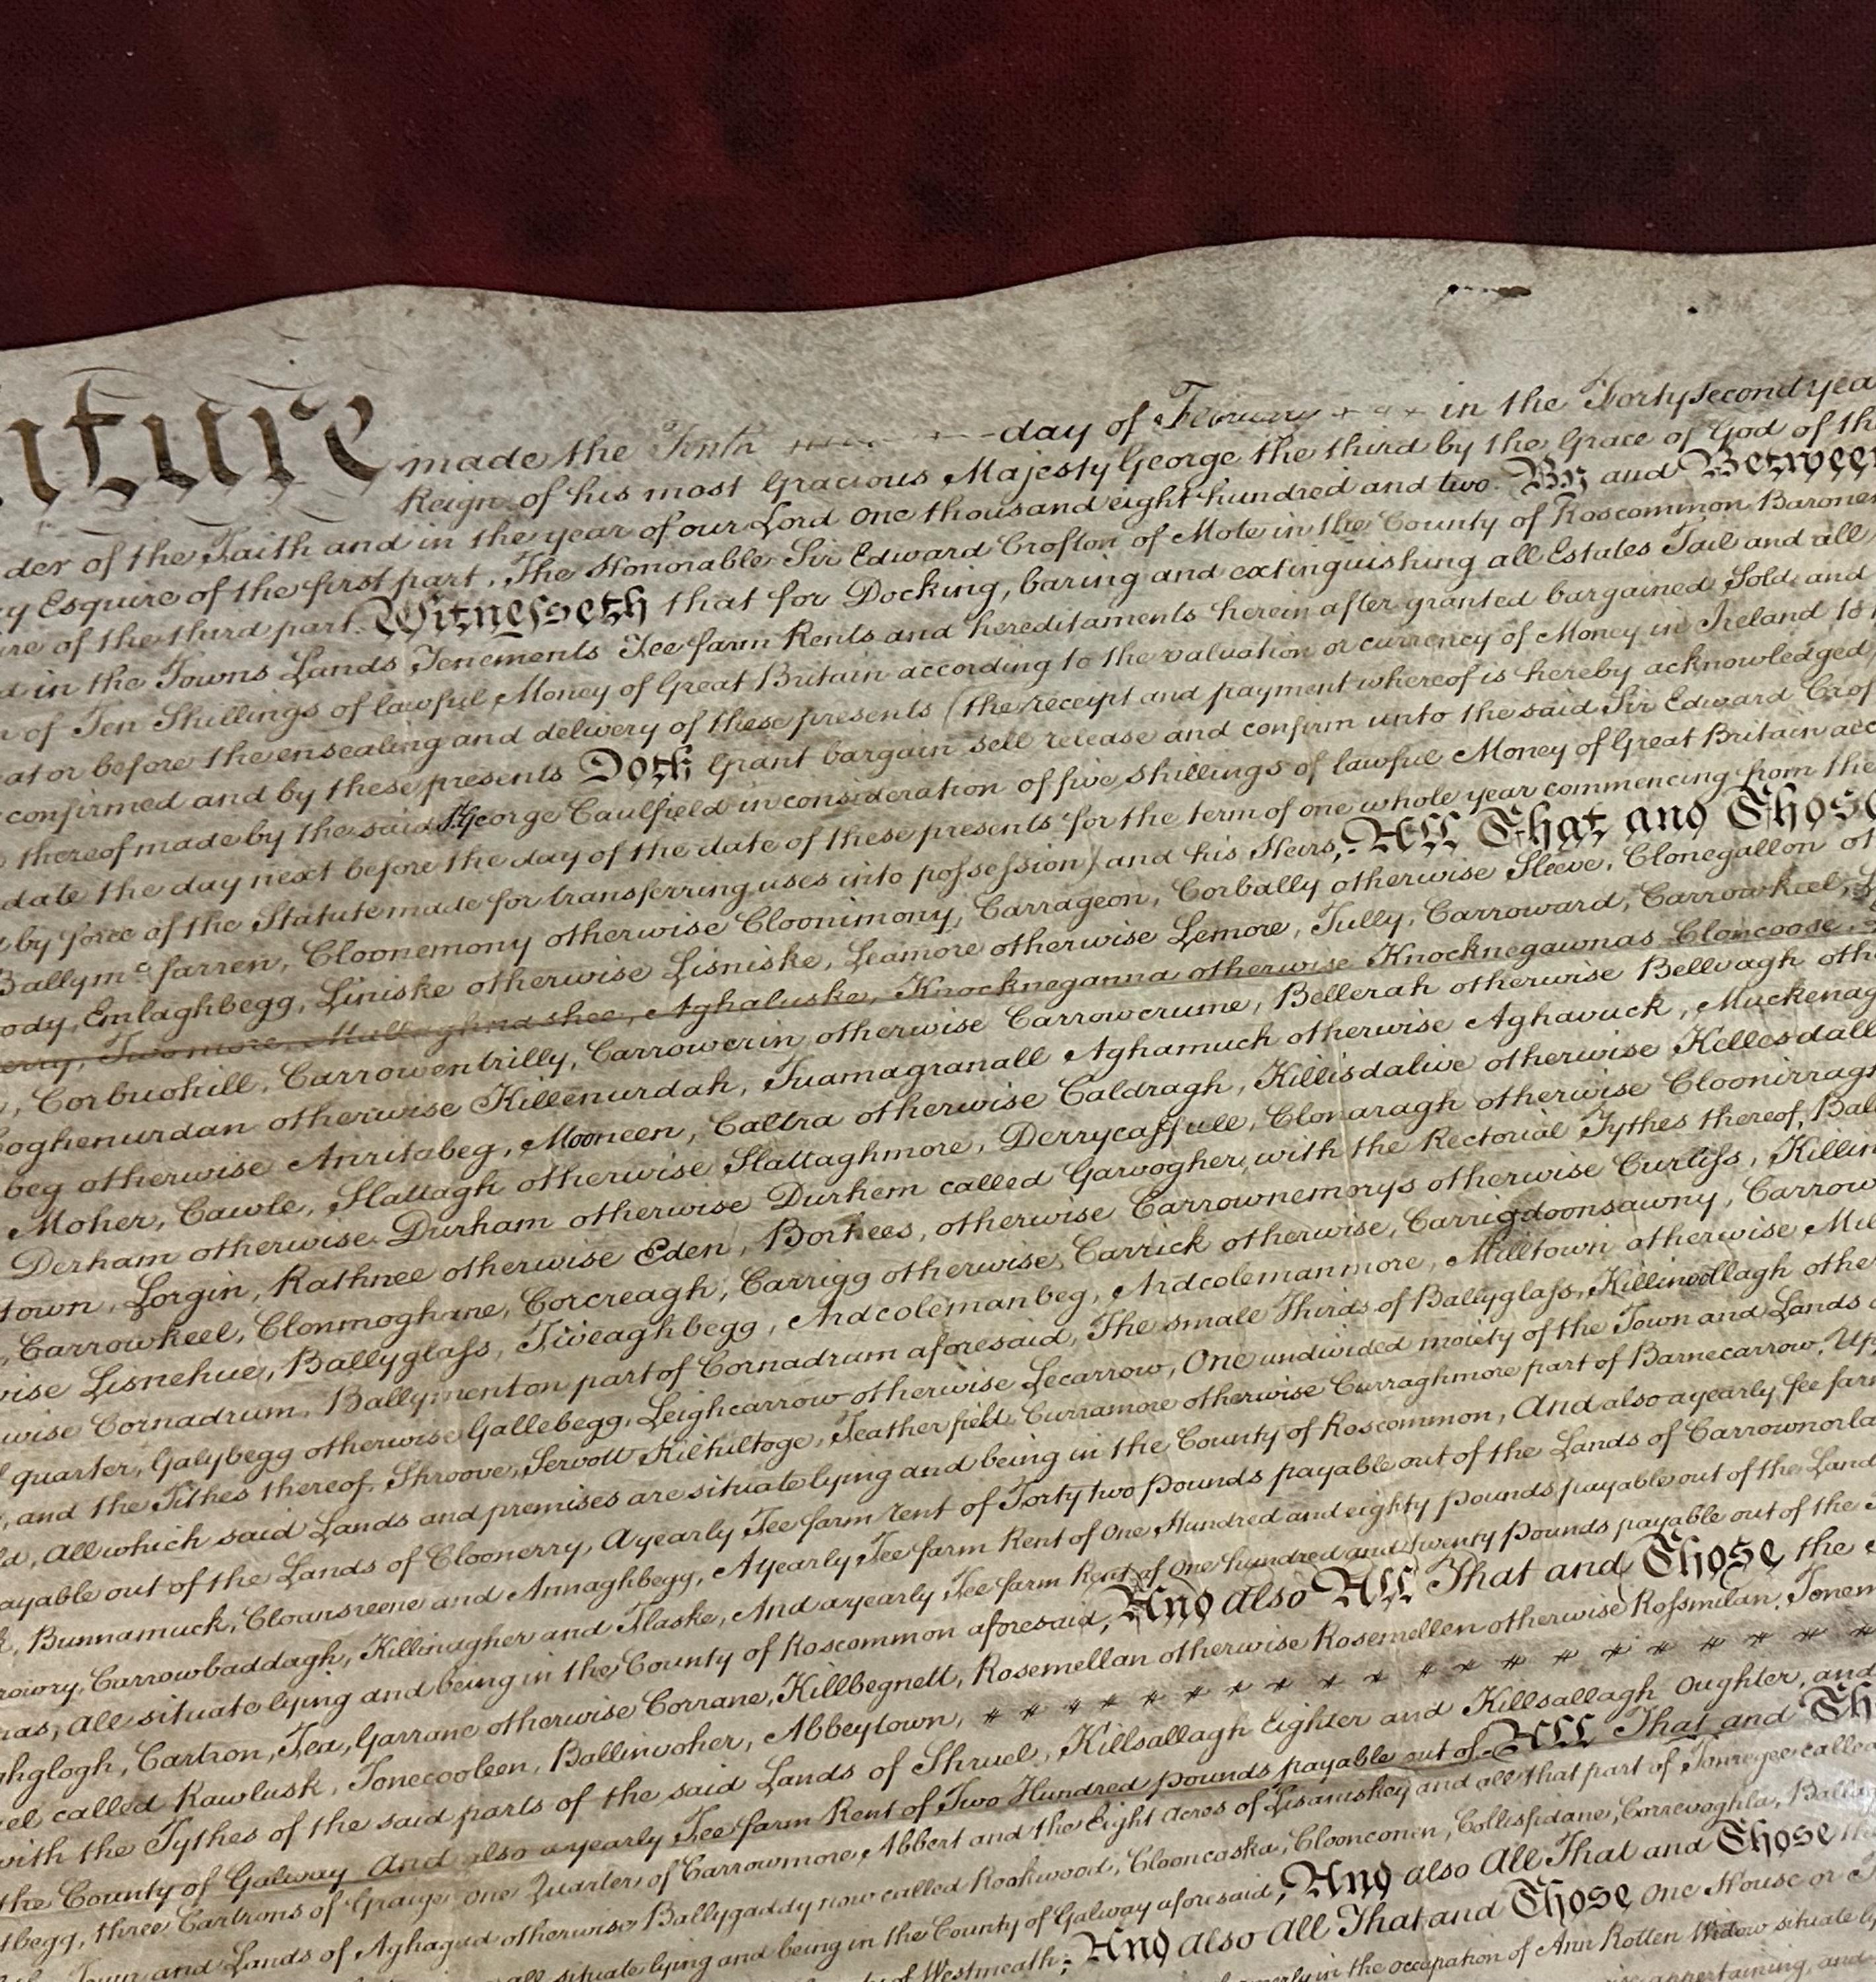 nture made the Tenth day of February in the Forty second yea
Reign of his most Gracious Majesty George the third by the Grace of God of th
der of the Faith and in the year of our Lord One thousand eight hundred and two. By and Between
y Esquire of the first part, The Honorable Sir Edward Crofton of Mote in the County of Roscommon Barone
ire of the third part. Witnesseth that for Docking, baring and extinguishing all Estates Tail and all
d in the Towns Lands Tenements Fee farm Rents and hereditaments herein after granted bargained Sold and
n of Ten Shillings of lawful Money of Great Britain according to the valuation or currency of Money in Ireland to
at or before the ensealing and delivery of these presents (the receipt and payment whereof is hereby acknowledged
confirmed and by these presents Doth Grant bargain sell release and confirm unto the said Sir Edward Crof
thereof made by the said George Caulfield in consideration of five shillings of lawful Money of Great Britain acc
date the day next before the day of the date of these presents for the term of one whole year commencing from the
by force of the Statute made for transferring uses into possession) and his Heirs, All That and Those
Ballymcfarren, Cloonemony otherwise Cloonimony, Carrageon, Corbally otherwise Sleeve, Clonegallon ot
ody, Emlaghbegg, Liniske otherwise Lisniske, Leamore otherwise Lemore, Tully, Carroward, Carrowkeel,
erry, Twomore, Mullaghnashee, Aghaluske, Knockneganna otherwise Knocknegawnas Cloncoose
Corbuohill, Carrowentrilly, Carrowerin otherwise Carrowcrume, Bellerah otherwise Bellvagh oth
oghenurdan otherwise Killenurdah, Tuamagranall Aghamuck otherwise Aghavuck, Muckenag
beg otherwise Anritabeg, Mooneen, Caltra otherwise Caldragh, Killisdalive otherwise Kellesdall
Moher, Cawle, Slattagh otherwise Slattaghmore, Derrycaffull, Clonaragh otherwise Cloonirragh
Derham otherwise Durham otherwise Durhem called Garvogher, with the Rectorial Tythes thereof, Bal
town, Lorgin, Rathnee otherwise Eden, Bortees, otherwise Carrownemorys otherwise Curtiss, Killin
, Carrowkeel, Clonmoghane, Corcreagh, Carrigg otherwise, Carrick otherwise, Carrigdoonsawny, Carrow
wise Lisnehue, Ballyglass, Tiveaghbegg, Ardcolemanbeg, Ardcolemanmore, Milltown otherwise Mil
wise Cornadrum, Ballymenton part of Cornadrum aforesaid, The small Thirds of Ballyglass, Killinvollagh othe
quarter, Galybegg otherwise Gallebegg, Leighcarrow otherwise Lecarrow, One undivided moiety of the Town and Lands
, and the Tithes thereof, Shroove, Servoll Kilhultoge, Featherfield Curramore otherwise Curraghmore part of Barnecarrow, Up
d, all which said Lands and premises are situate lying and being in the County of Roscommon, And also a yearly fee farm
ayable out of the Lands of Cloonerry, A yearly Fee farm rent of Forty two Pounds payable out of the Lands of Carrownorla
k, Bunnamuck, Cloansreene and Annaghbegg, A yearly Fee farm Rent of One Hundred and eighty Pounds payable out of the Land
rowry, Carrowbaddagh, Killinagher and Flaske, And a yearly Fee farm Rent of One hundred and twenty Pounds payable out of the
nas, all situate lying and being in the County of Roscommon aforesaid, And also All That and Those the
ghglogh, Cartron, Tea, Garrane otherwise Corrane, Killbegnett, Rosemellan otherwise Rosemellen otherwise Rossmilan, Tonem
el called Rawlusk, Tonecooleen, Ballinvoher, Abbeytown,
with the Tythes of the said parts of the said Lands of Shruel, Killsallagh Eighter and Killsallagh Oughter, and
the County of Galway And also a yearly Fee farm Rent of Two Hundred Pounds payable out of All That and Th
tbegg, three Cartrons of Graige one Quarter of Carrowmore, Abbert and the Eight Acres of Lisaniskey and all that part of Tonregee called
Town and Lands of Aghagad otherwise Ballygaddy now called Rookwood, Clooncoska, Cloonconen, Collisfidane, Correvoghla, Balla
all situate lying and being in the County of Galway aforesaid, And also All That and Those
of Westmeath; And also All That and Those One House or
merly in the occupation of Ann Rotten Widow situate
appertaining, and